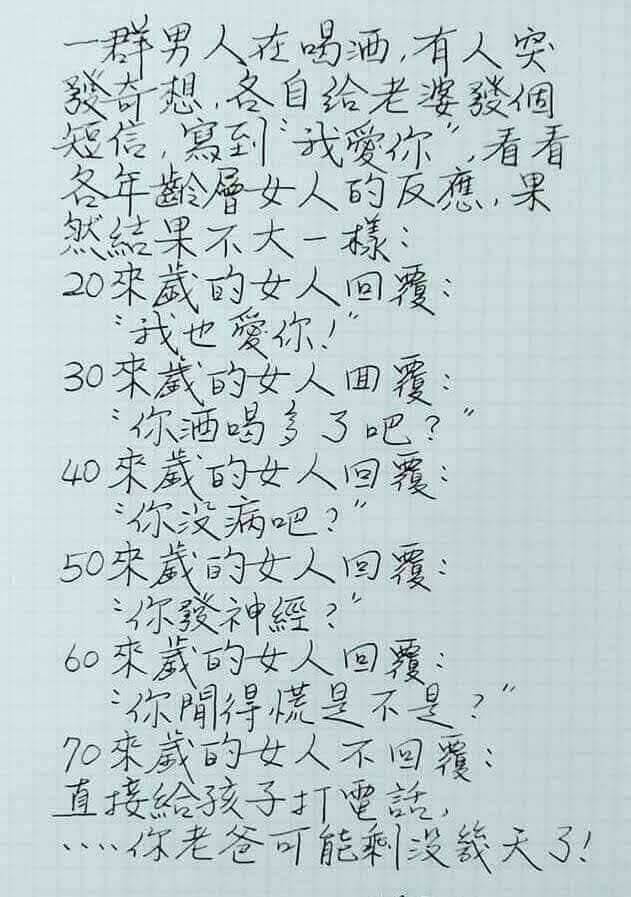 一群男人在喝酒,有人突
發奇想,各自給老婆發個
短信,寫到"我愛你",看看
各年齡層女人的反應,果
然結果不大一樣:
20來歲的女人回覆:
"我也愛你!"
30來歲的女人回覆:
"你酒喝多了吧?"
40來歲的女人回覆:
"你沒病吧?"
50來歲的女人回覆:
"你發神經?"
60來歲的女人回覆:
"你閒得慌是不是?"
70來歲的女人不回覆:
直接給孩子打電話,
.....你老爸可能剩沒幾天了!